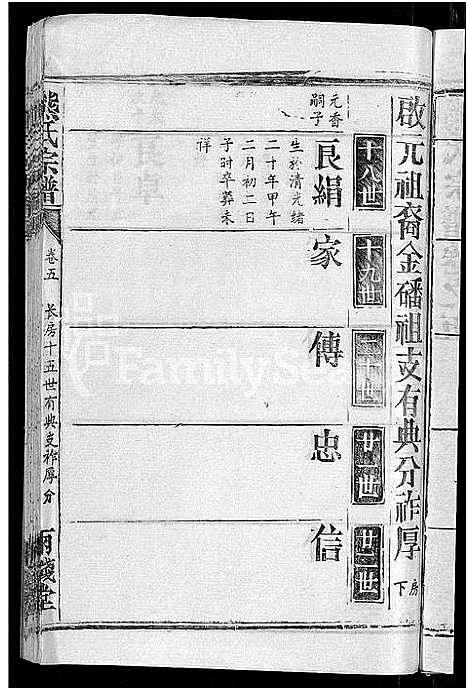 啟元祖裔金磻祖支有典分祚厚房下
十八世
十九世
二十世
廿一世
廿二世
元香
嗣子
良絹
家
傳
忠
信
生於清光緒
二十年甲午
二月初二日
子时卒葬未
祥
熊氏宗譜
卷五
长房十五世有典支祚厚分
兩錢堂
FamilySearch